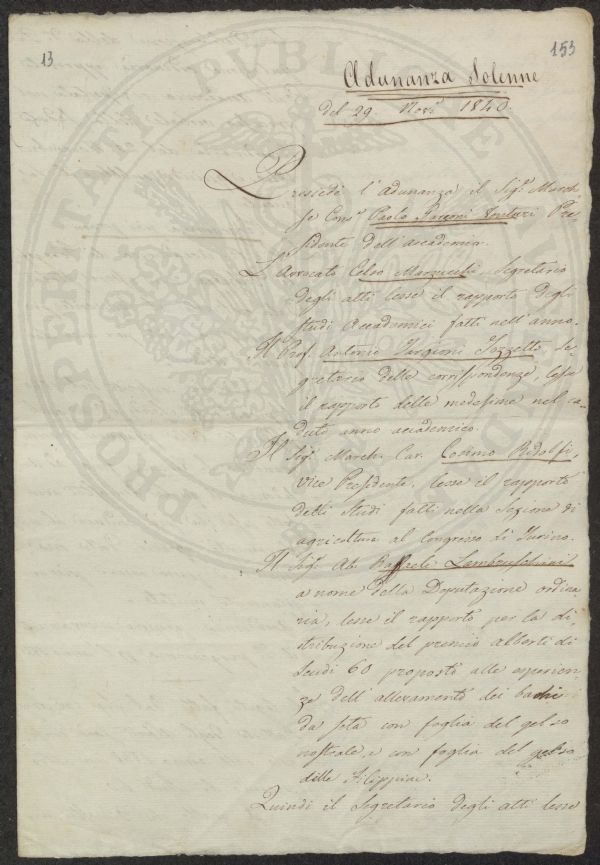 13
153
Adunanza Solenne
del 29. Nov.e 1840.
Presiedè l'adunanza il Sig.r March
se Cons.e Paolo Garzoni Venturi Pre-
sidente dell'Accademia.
L'Avvocato Celso Marzucchi, Segretario
degli atti lesse il rapporto degli
studi Accademici fatti nell'anno.
Il Prof. Antonio Targioni Tozzetti, Se-
gretario delle corrispondenze, lesse
il rapporto delle medesime nel ca-
duto anno accademico.
Il Sig.r March. Cav. Cosimo Ridolfi,
Vice Presidente, lesse il rapporto
delli Studi fatti nella Sezione di
agricoltura al Congresso di Turino.
Il Sig.r Ab. Raffaele Lambruschini
a nome della Deputazione ordina-
ria, lesse il rapporto per la di-
stribuzione del premio Alberti di
Scudi 60 proposto alle esperien-
ze dell'allevamento dei bachi
da seta con foglia del gelso
nostrale, e con foglia del gelso
delle Filippine.
Quindi il Segretario degli atti lesse
PROSPERITATI PUBLICAE AU